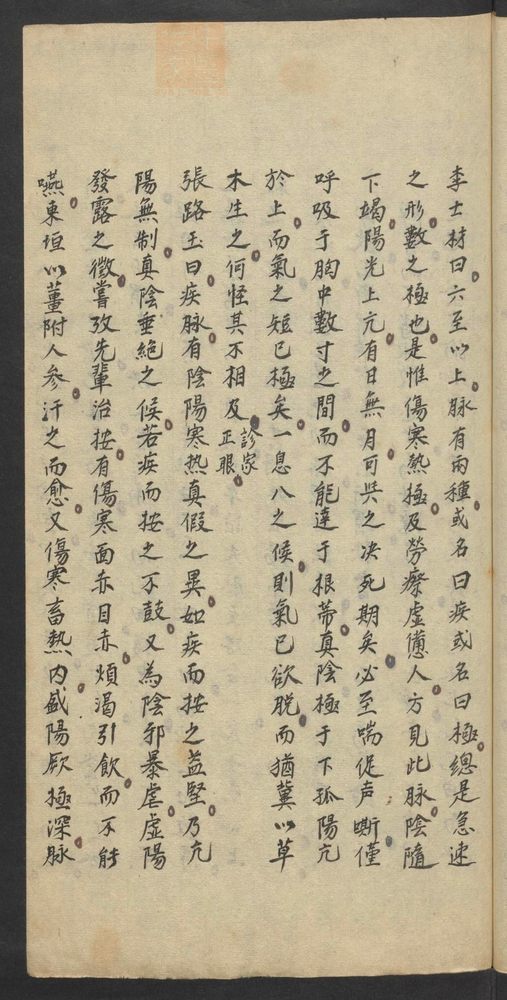 李士材曰六至以上脉有两種或名曰疾或名曰極總是急速
之形數之極也是惟傷寒熱極及勞瘵虚憊人方見此脉陰隨
下竭陽光上亢有日無月可與之决死期矣必至喘促声嘶僅
呼吸于胸中數寸之間而不能達于根蒂真陰極于下孤陽亢
於上而氣之短已極矣一息八之候則氣已欲脱而猶冀以草
木生之何怪其不相及診家正眼
張路玉曰疾脉有陰陽寒热真假之異如疾而按之益堅乃亢
陽無制真陰垂絶之候若疾而按之不鼓又為陰邪暴虐虚陽
發露之徵嘗攷先輩治按有傷寒面赤目赤煩渴引飲而不能
嚥東垣以薑附人參汗之而愈又傷寒畜热内盛陽厥極深脉